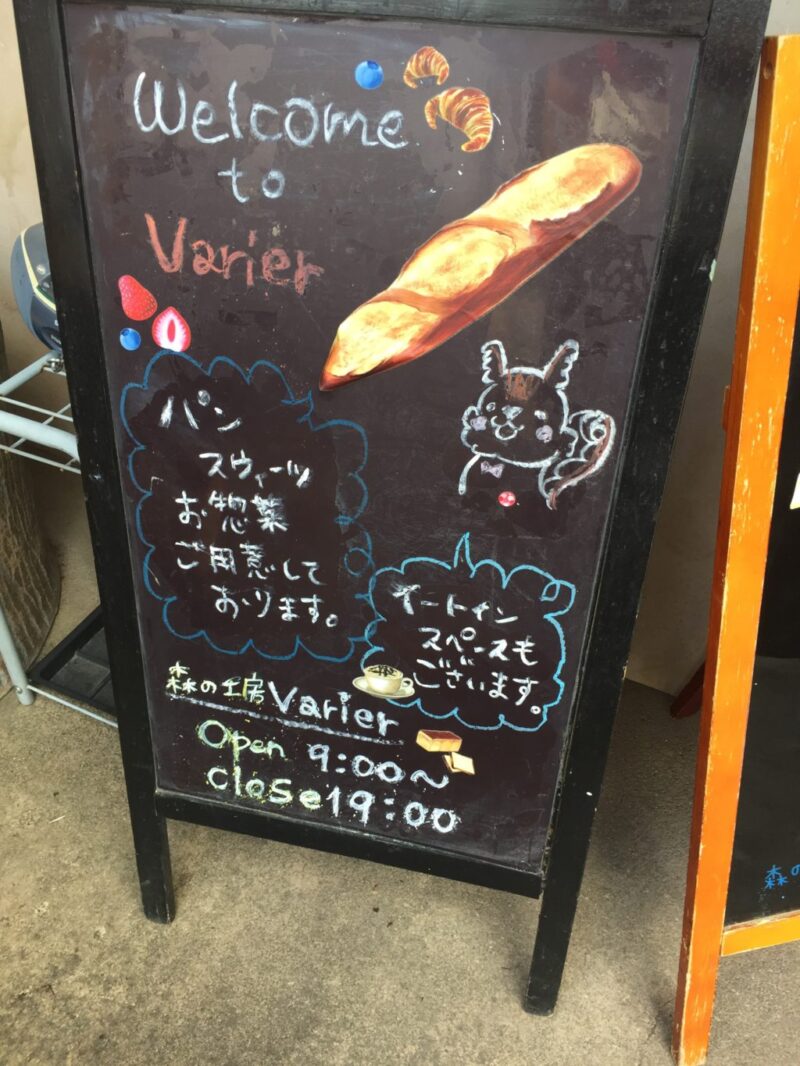 Welcome
to
Varier
パン
スウィーツ
お惣菜
ご用意して
おります。
イートイン
スペースも
ございます。
森の工房 Varier
Open 9:00～
close 19:00
森の